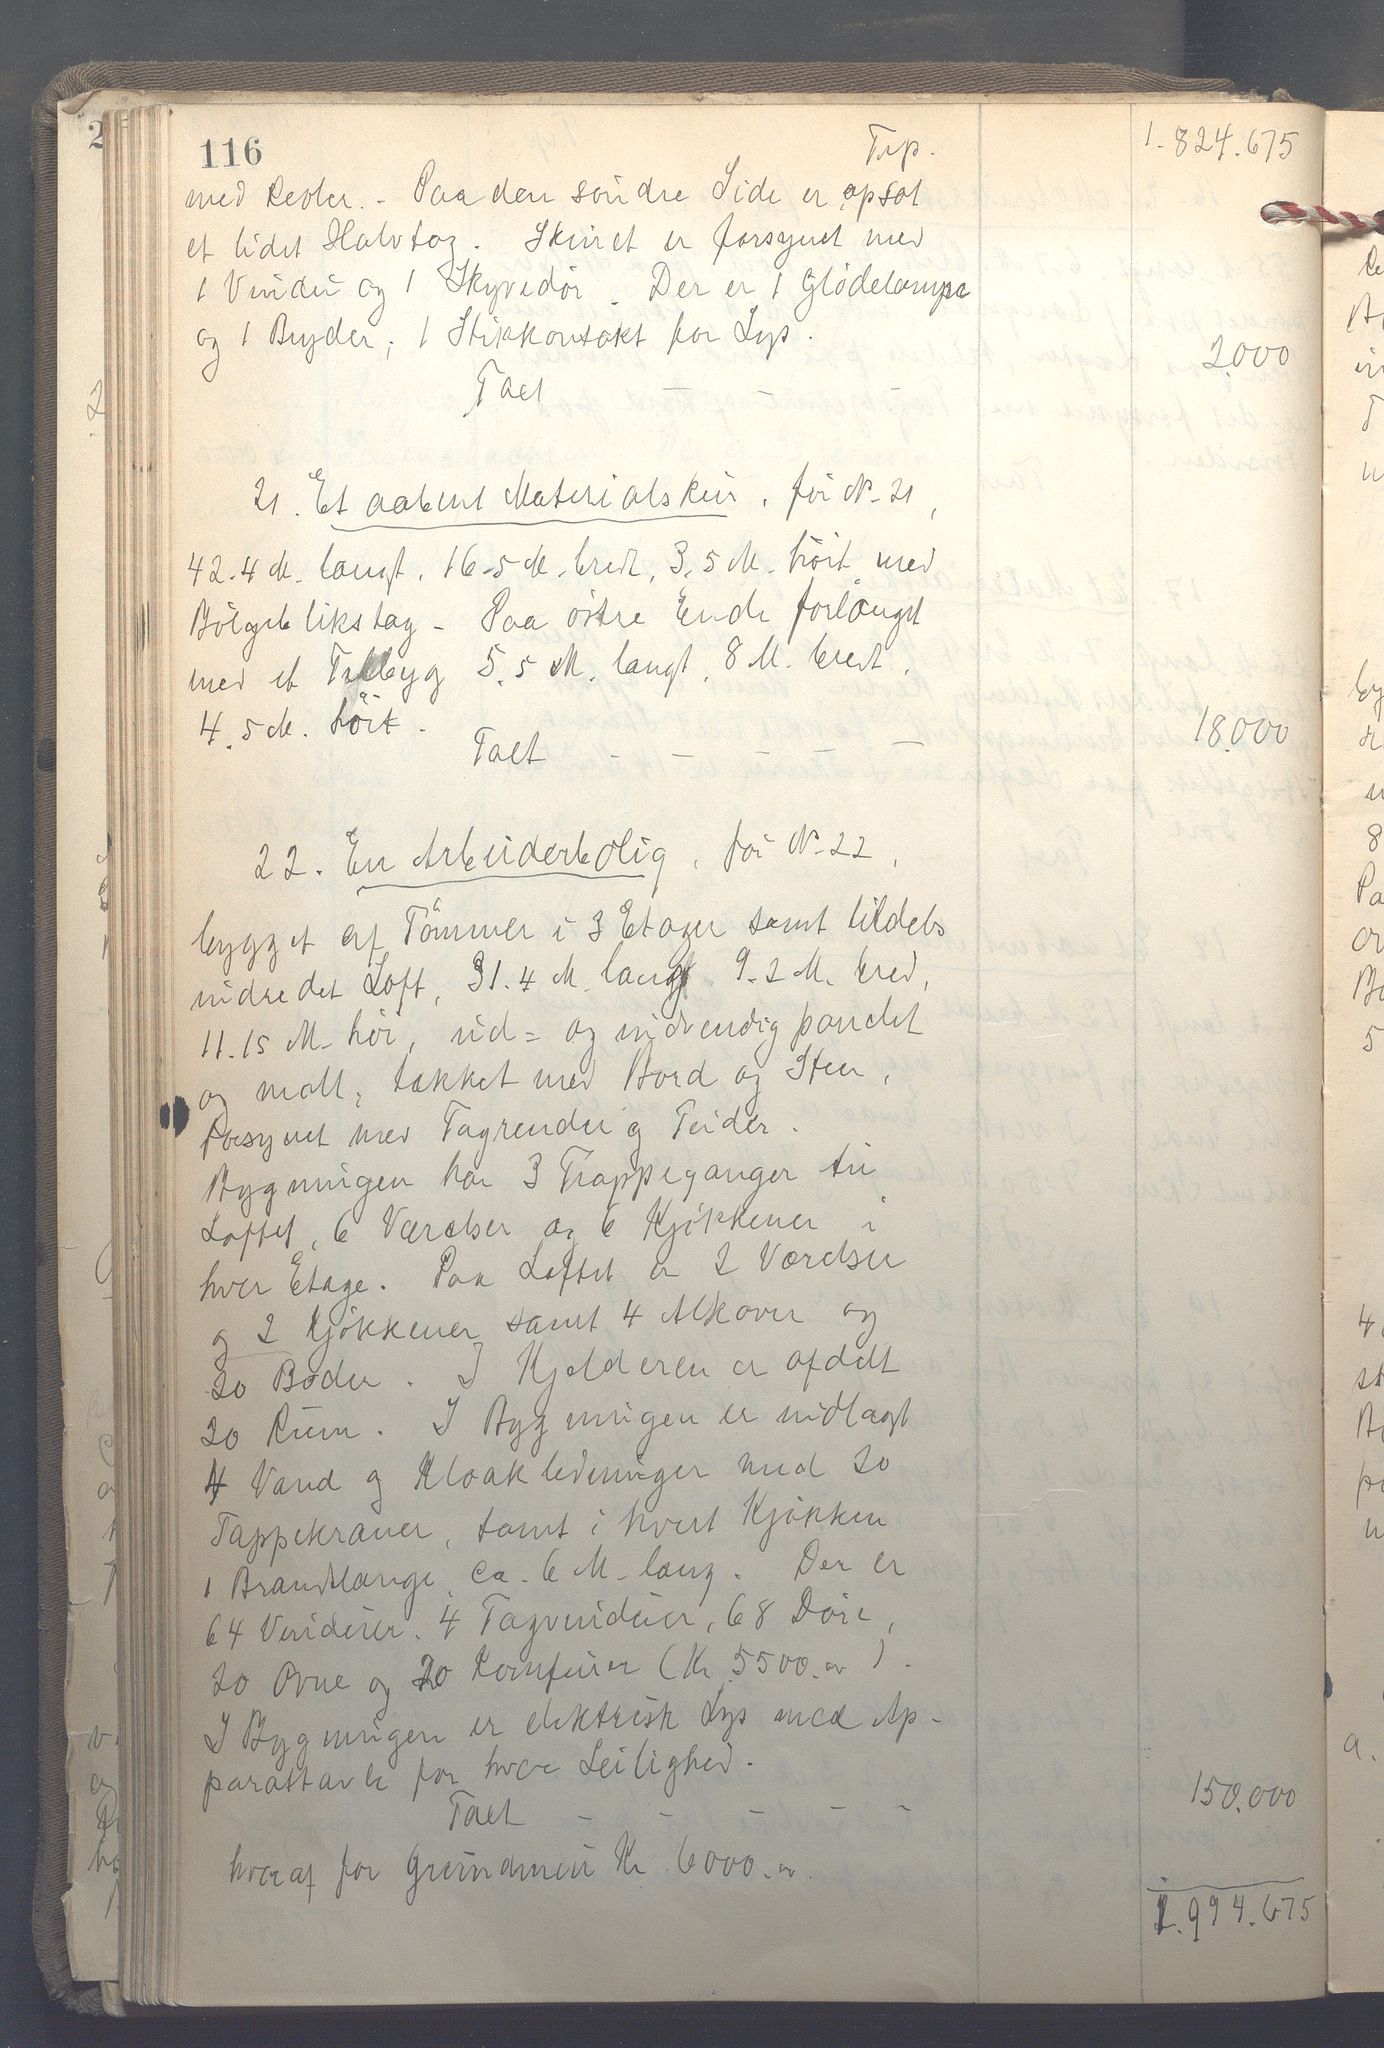 116 Trp. 1.824.675
med Revler. - Paa den söndre Side er opsat
et lidet Halvtag. Skuret er forsynet med
1 Vindu og 1 Skyvedör. Der er 1 Glødelampe
og 1 Bryder, 1 Stikkontakt for Lys.
Taxt 2.000
21. Et aabent Materialskur, för N- 21,
42.4 M. langt, 16.5 M. bredt, 3.5 M. höit med
Bölgebliktstag - Paa östre Ende forlænget
med et Tilbyg 5.5 M. langt, 8 M. bredt,
4.5 M. höit.
Taxt - - - - - 18.000
22. En Arbeiderbolig, för N- 22,
bygget af Tömmer i 3 Etager samt tildels
indredet Loft, 31.4 M. lang, 9.2 M. bred,
11.15 M. höi, ud= og indvendig pandet
og malt, tækket med Bord og Sten,
forsynet med Tagrender og
Bygningen har 3 Trappeganger til
Loftet, 6 Værelser og 6 Kjøkkener i
hver Etage. Paa Loftet er 2 Værelser
og 2 Kjøkkener samt 4 Alkover og
20 Boder. I Kjelderen er afdelt
20 Rum. I Bygningen er indlagt
Vand og Kloakledninger med 20
Tappekraner, samt i hvert Kjøkken
1 Brandslange, ca. 6 M. lang. Der er
64 Vinduer, 4 Tagvinduer, 68 Döre,
20 Ovne og 20 Komfurer (Kr. 5500.00).
I Bygningen er elektrisk Lys med Ap-
parattavle for hver Leilighed.
Taxt - - - - - 150.000
hveraf for Grundmur Kr. 6000.00
1.994.675